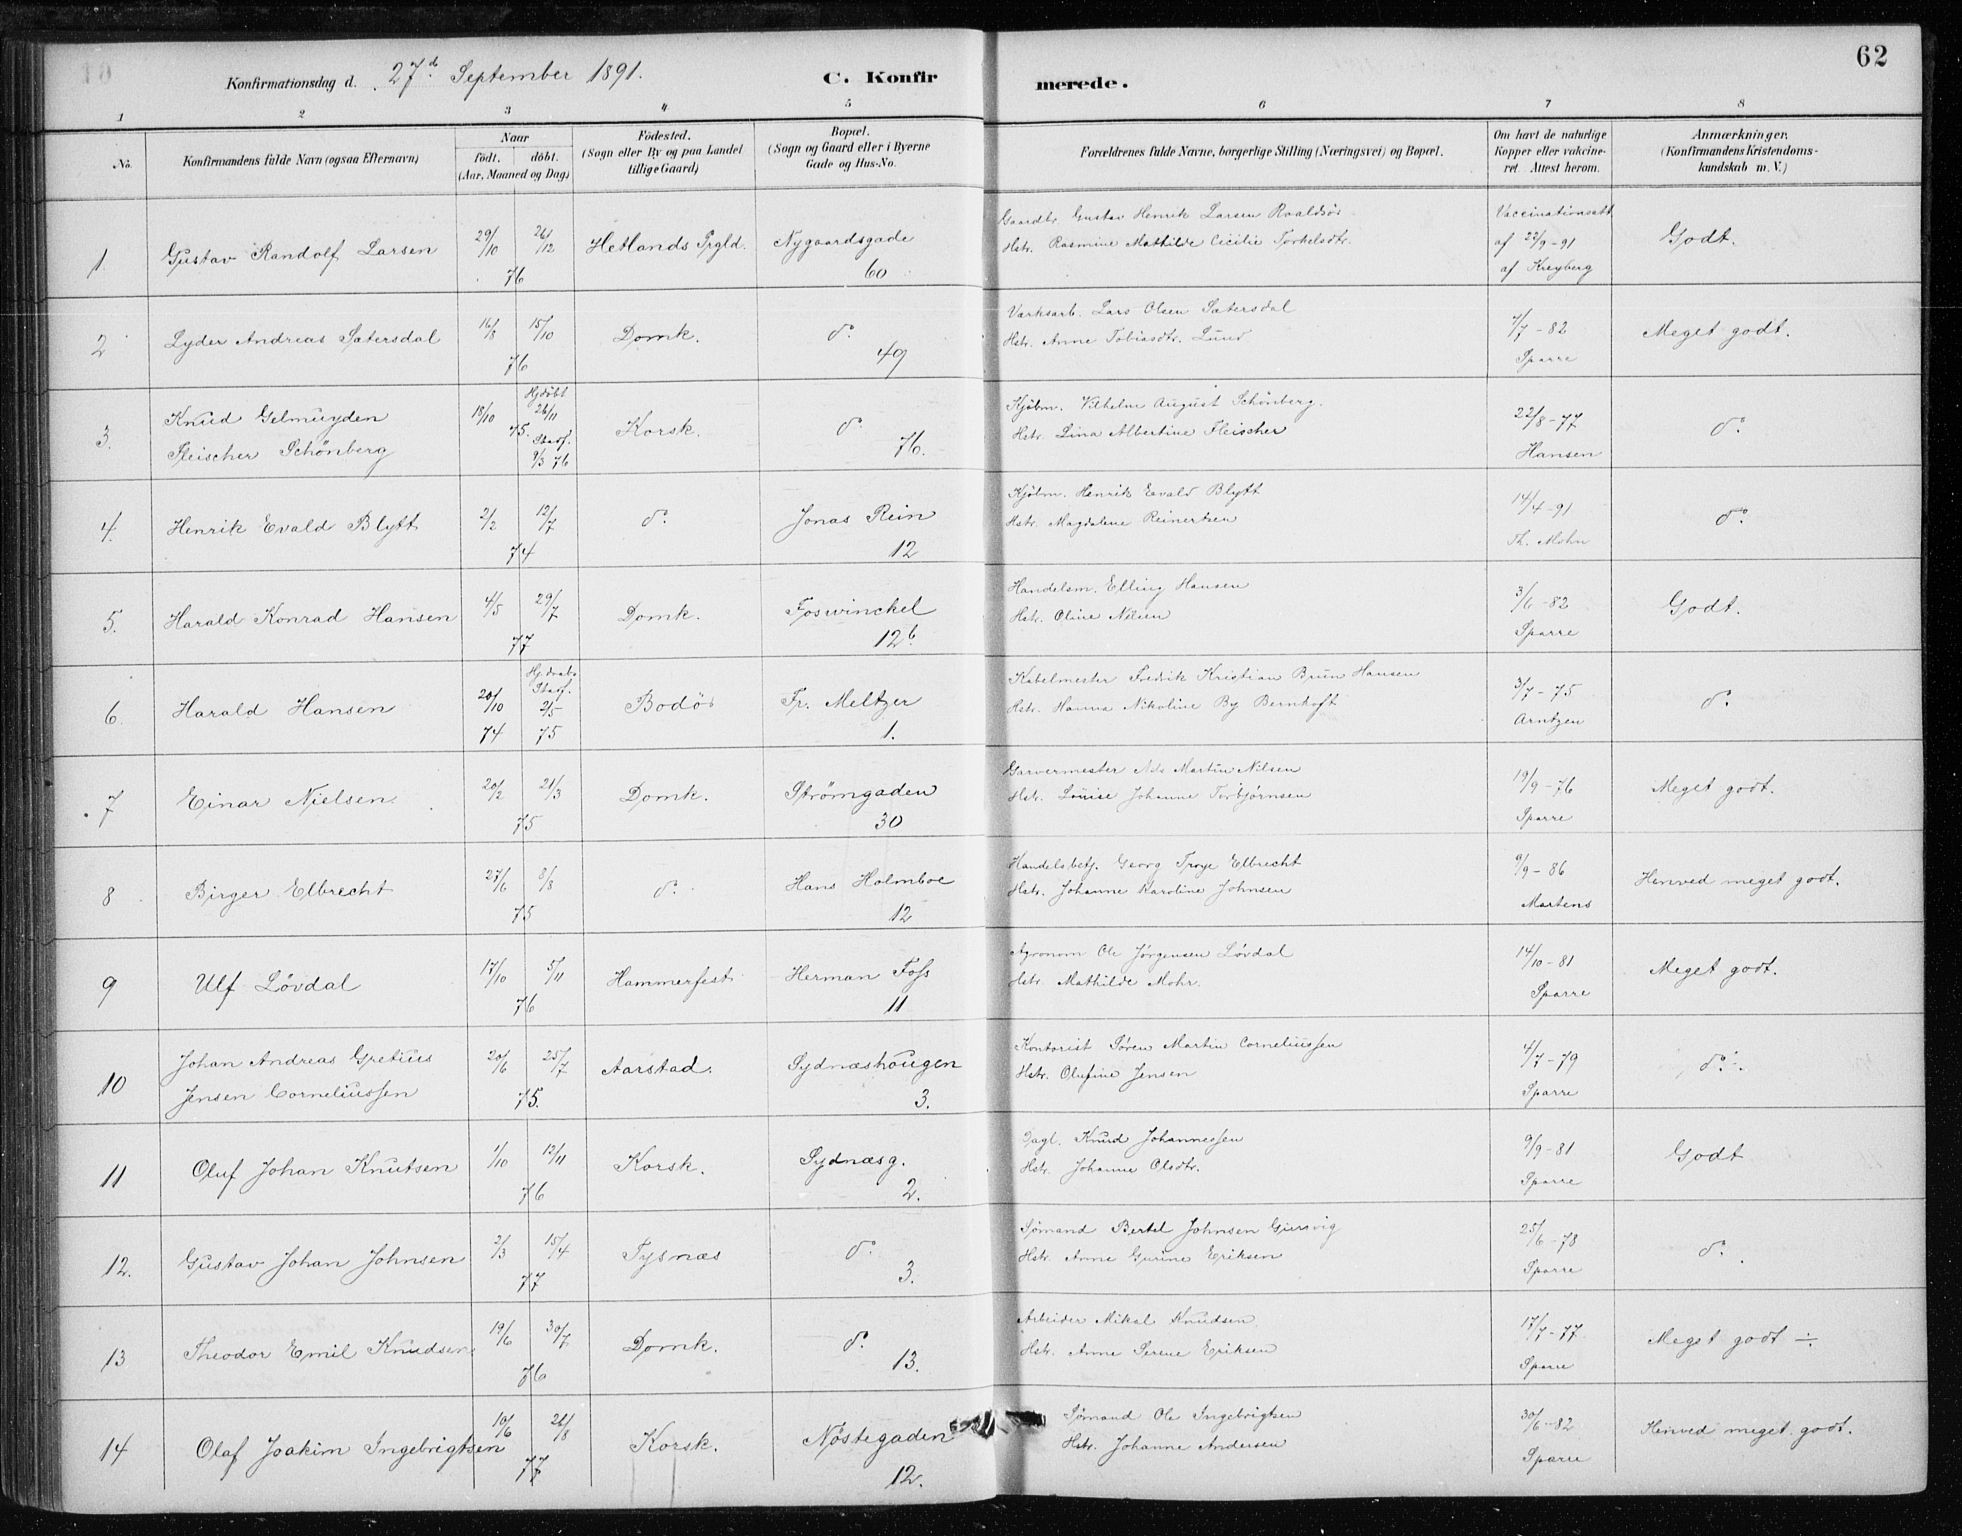 62
Konfirmationsdag d. 27d September 1891. C. Konfirmerede.
1 2 3 4 5 6 7 8
No. Konfirmandens fulde Navn (ogsaa Efternavn) Naar født. døbt. (Aar, Maaned og Dag) Fødested. (Sogn eller By og paa Landet tillige Gaard) Bopæl. (Sogn og Gaard eller i Byerne Gade og Hus-No. Forældrenes fulde Navne, borgerlige Stilling (Næringsvei) og Bopæl. Om havt de naturlige Kopper eller vakcineret. Attest herom. Anmærkninger. (Konfirmandens Kristendomskundskab m. V.)
1. Gustav Randolf Larsen 29/10 26/12 76 Hetlands Prgld. Nygaardsgade 60
Gaardbr. Gustav Henrik Larsen Roaldsøs
Hstr. Rasmine Mathilde Cicilie Torkelsdtr.
Vaccinationsatt. af 22/9-91 af Kreyberg Godt.
2 Lyder Andreas Sætersdal 16/8 15/10 76 Domk. do 49
Værksarb. Lars Olsen Sætersdal
Hstr. Anne Tobiasdtr. Lund
7/7-82 Sparre Meget godt.
3. Knud Gelmuyden
Fleischer Schönberg 18/10 Hjdøbt 26/11 75. Stadf. 9/3 76 Korsk. do 76.
Kjøbm. Vilhelm August Schönberg.
Hstr. Lina Albertine Fleischer
22/8-77 Hansen do
4. Henrik Evald Blytt 2/2 12/7 74 do Jonas Rein 12
Kjøbm. Henrik Evald Blytt
Hstr. Magdalene Reinertsen
14/4-91 Th. Mohn do
5. Harald Konrad Hansen 4/5 29/7 77 Domk. Foswinckel 12b
Handelsm. Elling Hansen
Hstr. Oline Nilsen
3/6-82 Sparre Godt.
6. Harald Hansen 20/10 74 Stadf. 2/5 75 Bodø Fr. Meltzer 1.
Kabelmester Fredrik Kristian Brun Hansen
Hstr. Hanna Nikoline By Bernhoft
3/7-75 Arntzen do
7 Einar Nielsen 20/2 21/3 75 Domk. Strømgaden 30
Garvermester Nils Martin Nilsen
Hstr. Louise Johanne Torbjørnsen
19/9-76 Sparre Meget godt.
8 Birger Elbrecht 27/6 8/8 75 do Hans Holmboe 12
Handelsbetj. Georg Troye Elbrecht
Hstr. Johanne Karoline Johnsen
9/9-86 Martens Henved meget godt.
9 Ulf Løvdal 17/10 5/11 76 Hammerfest Herman Foss 11
Agronom Ole Jørgensen Løvdal
Hstr. Mathilde Mohr.
14/10-81 Sparre Meget godt.
10 Johan Andreas Gretius
Jensen Corneliussen 20/6 25/7 75. Aarstad. Sydnæshougen 3.
Kontorist Søren Martin Corneliussen
Hstr. Olufine Jensen
4/7-79 Sparre do ÷.
11 Oluf Johan Knutsen 1/10 12/11 76 Korsk. Sydnæsg. 2.
Dagl. Knud Johannessen
Hstr. Johanne Olsdtr.
9/9-81 Sparre Godt
12. Gustav Johan Johnsen 2/3 15/4 77 Tysnæs do 3.
Sømand Bertel Johnsen Gjersvig
Hstr. Anne Gurine Eriksen
25/6-78 Sparre do
13 Theodor Emil Knudsen 19/6 30/7 76 Domk. do 13.
Arbeider Mikal Knudsen
Hstr. Anne Serene Eriksen
17/7-77 Sparre Meget godt ÷.
14 Olaf Joakim Ingebrigtsen 10/6 26/8 77 Korsk. Nøstegaden 12.
Sømand Ole Ingebrigtsen
Hstr. Johanne Andersen
30/6-82 Sparre Henved meget godt.